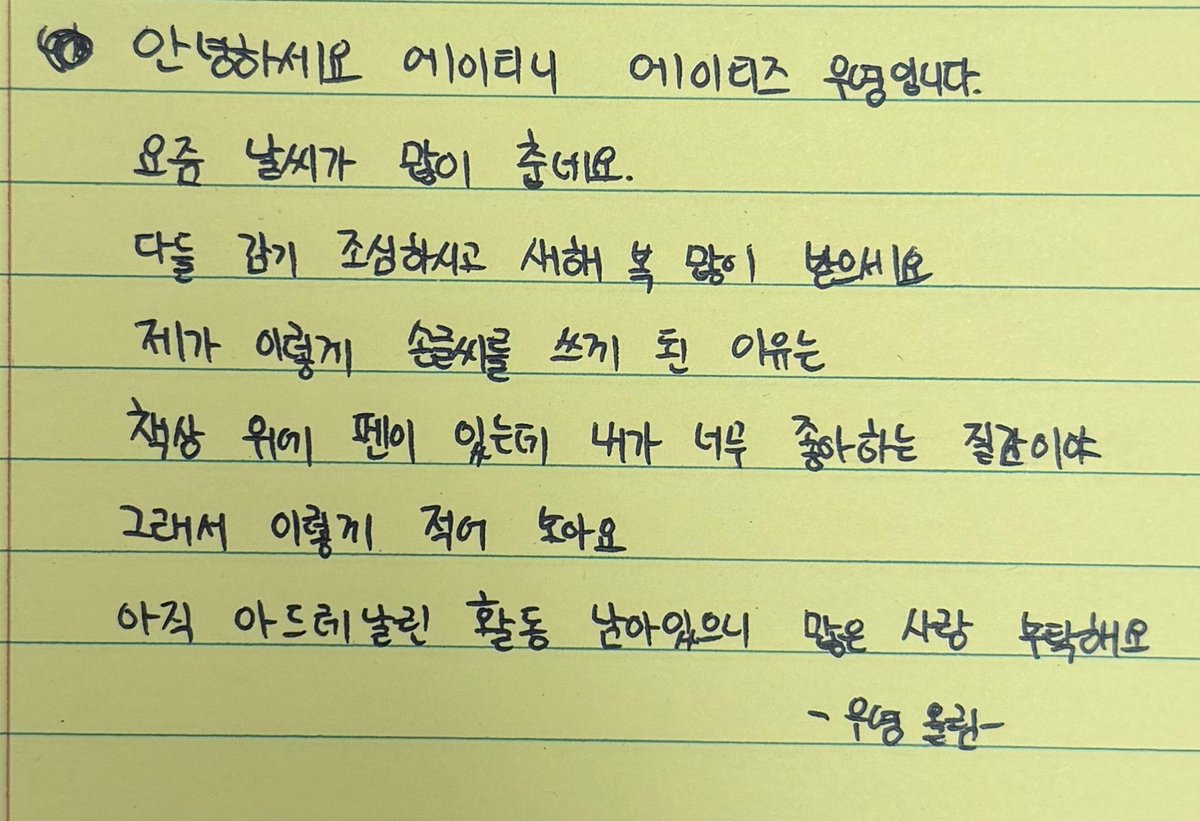 안녕하세요 에이티니 에이티즈 우영입니다.
요즘 날씨가 많이 춥네요.
다들 감기 조심하시고 새해 복 많이 받으세요
제가 이렇게 손글씨를 쓰게 된 이유는
책상 위에 펜이 있는데 내가 너무 좋아하는 질감이야
그래서 이렇게 적어 보아요
아직 아드레날린 활동 남아있으니 많은 사랑 부탁해요
- 우영 올림 -